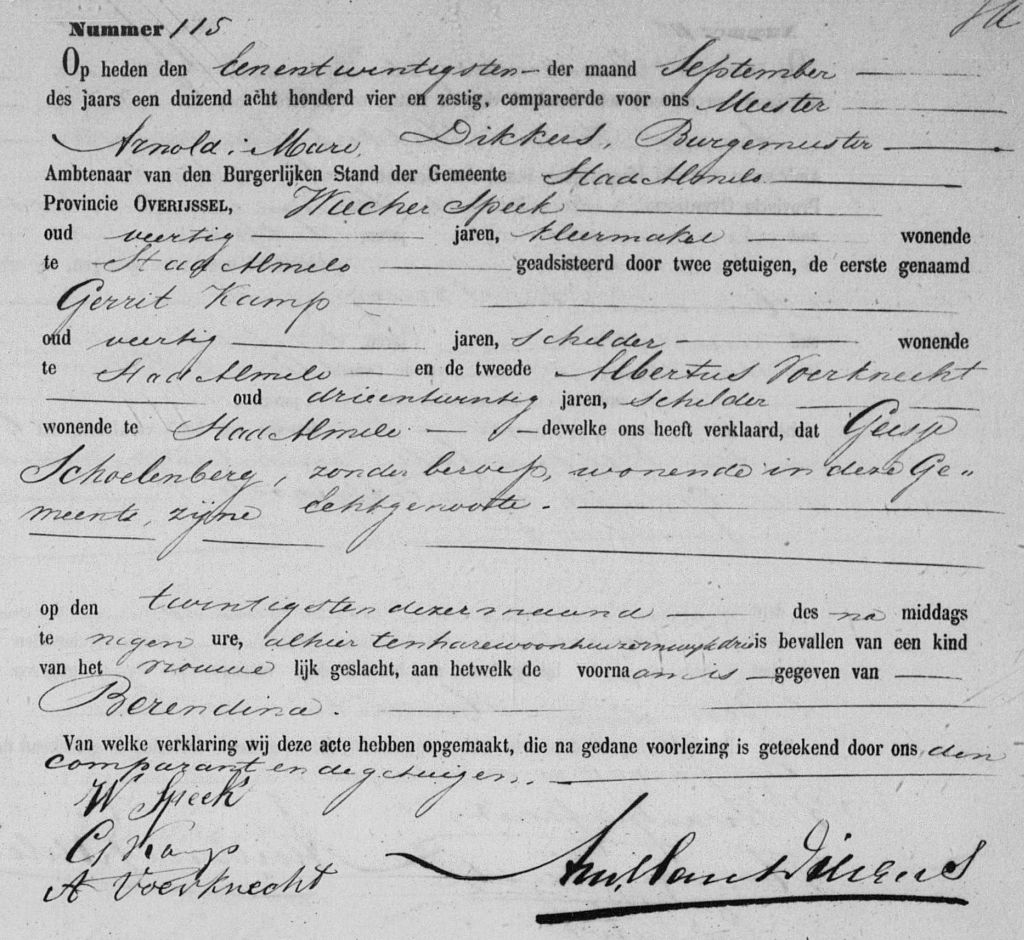 Nummer 115
Op heden den Eenentwintigsten der maand September
des jaars een duizend acht honderd vier en zestig, compareerde voor ons Meester
Arnold Marc Dikkers, Burgemeester
Ambtenaar van den Burgerlijken Stand der Gemeente Stad Almelo
Provincie OVERIJSSEL, Wiecher Speek
oud veertig jaren, kleermaker wonende
te Stad Almelo geadsisteerd door twee getuigen, de eerste genaamd
Gerrit Kamp
oud veertig jaren, schilder wonende
te Stad Almelo en de tweede Albertus Voerknecht
oud drieentwintig jaren, schilder
wonende te Stad Almelo dewelke ons heeft verklaard, dat Geesje
Schoelenberg, zonder beroep, wonende in deze Ge-
meente, zijne Echtgenoote.
op den twintigsten dezer maand des na middags
te negen ure, alhier ten harewoonhuize in wijk drie is bevallen van een kind
van het vrouwe lijk geslacht, aan hetwelk de voornaam is gegeven van
Berendina.
Van welke verklaring wij deze acte hebben opgemaakt, die na gedane voorlezing is geteekend door ons, den
comparant en de getuigen.
W Speek
G Kamp
A Voerknecht